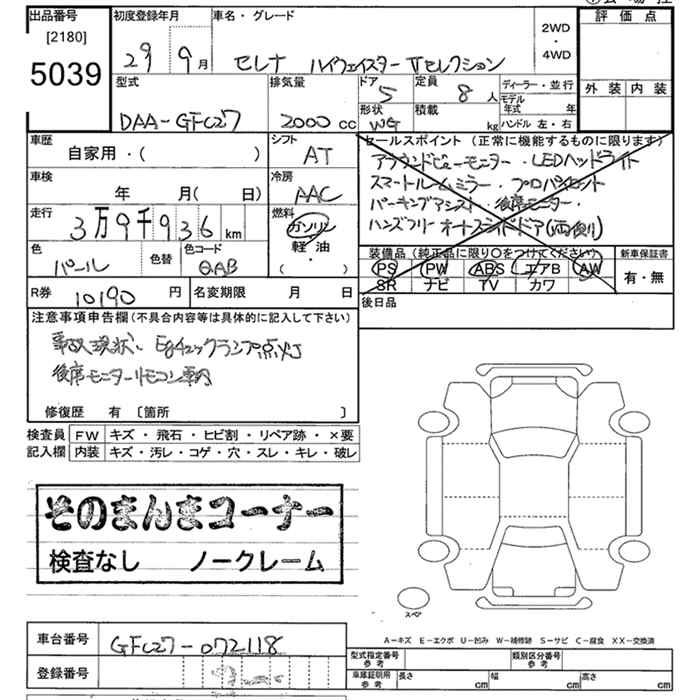 出品番号 初度登録年月 車名・グレード 評価点
[2180]
5039
29 9月 セレナ ハイウェイスター Vセレクション 2WD・4WD
外装 内装
型式 排気量 ドア 定員 ディーラー・並行
DAA-GFC27 2000cc 5 8人 モデル年式 年
形状 積載 ハンドル 左・右
WG kg
車歴 シフト セールスポイント(正常に機能するものに限ります)
自家用・( ) AT アラウンドビューモニター・LEDヘッドライト
車検 冷房 スマートルームミラー・プロパイロット
年 月(日) AAC パーキングアシスト・後席モニター・
走行 燃料 ハンズフリーオートスライドドア(両側)
3万9千936km ガソリン
軽油
( ・ )
色 色替 色コード 装備品(純正品に限り○をつけてください) 新車保証書
パール QAB PS PW ABS エアB AW 有・無
SR ナビ TV カワ
R券 10190円 名変期限 月 日 後日品
注意事項申告欄(不具合内容等は具体的に記入して下さい)
事故現状、Egチェックランプ点灯
後席モニターリモコン車内
修復歴 有 [箇所 ]
検査員 FW キズ・飛石・ヒビ割・リペア跡・×要
記入欄 内装 キズ・汚レ・コゲ・穴・スレ・キレ・破レ
そのまんまコーナー
検査なし ノークレーム
スペア
A-キズ E-エクボ U-凹み W-補修跡 S-サビ C-腐食 XX-交換済
車台番号 GFC27-072118
型式指定番号 参考 類別区分番号 参考
登録番号
車庫証明用 参考 長さ cm 幅 cm 高さ cm